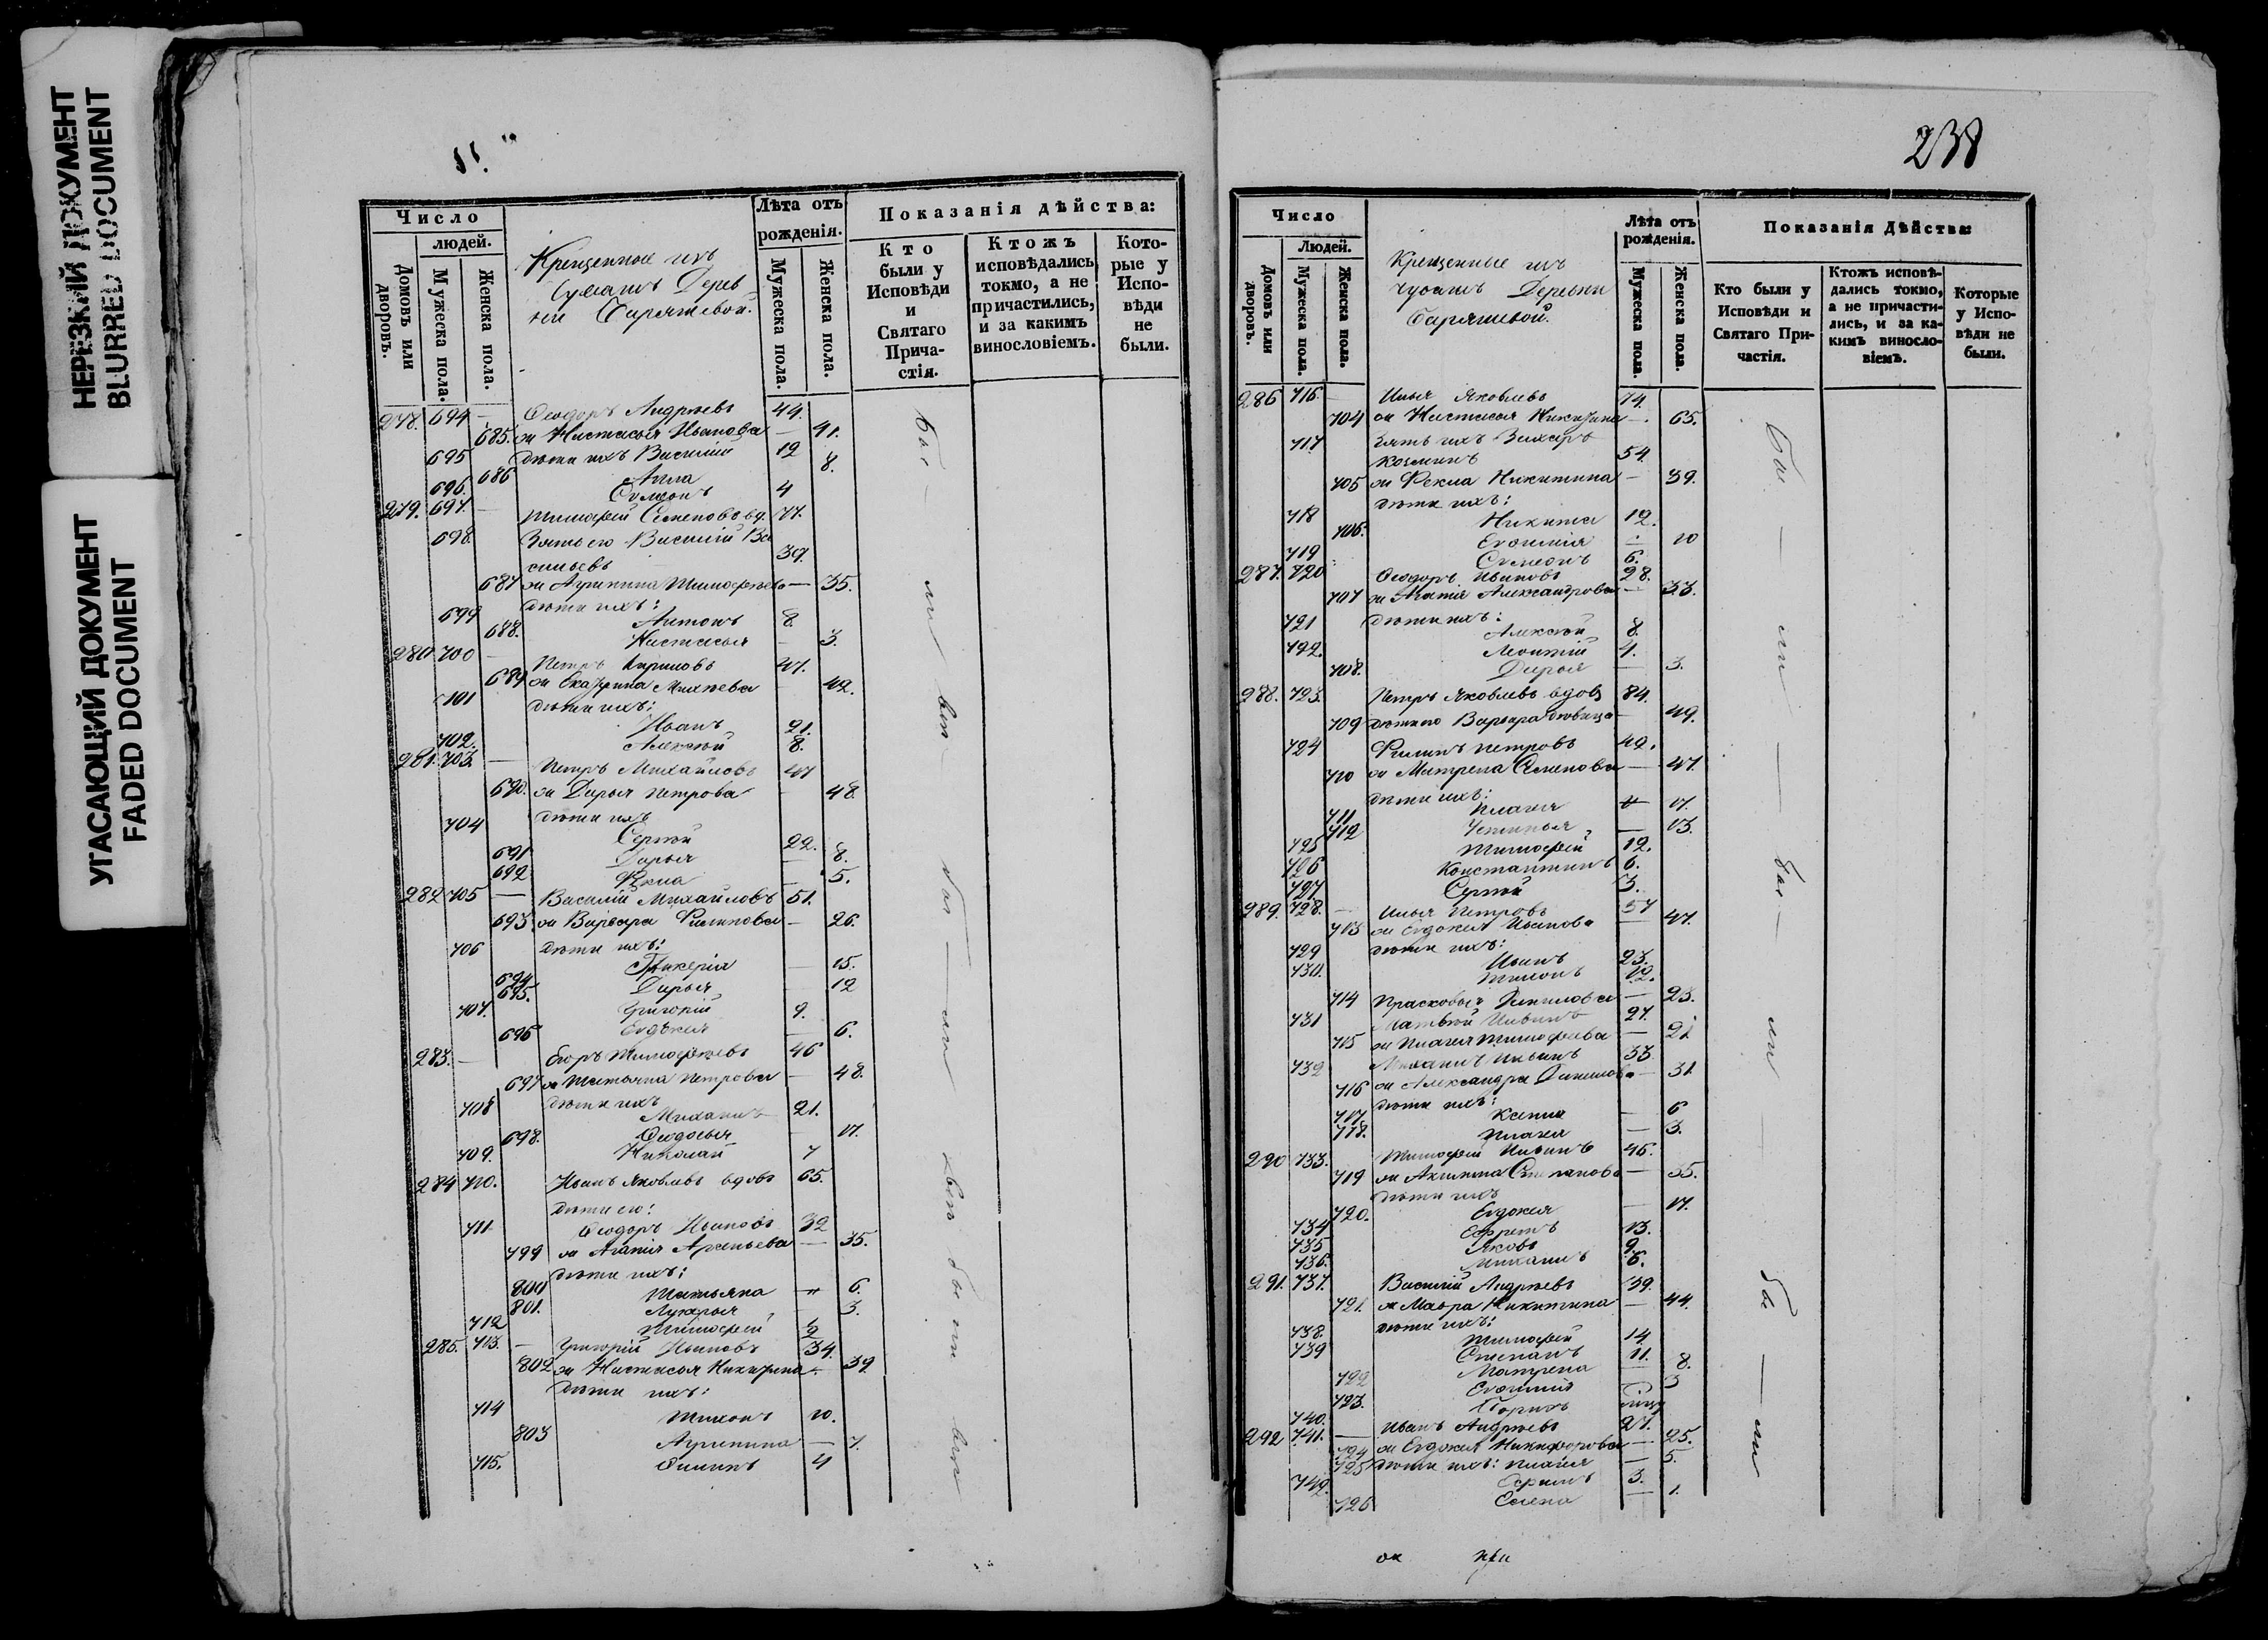 НЕРЕЗКИЙ ДОКУМЕНТ
BLURRED DOCUMENT
УГАСАЮЩИЙ ДОКУМЕНТ
FADED DOCUMENT
Число
людей.
Домовъ или дворовъ.
Мужеска пола.
Женска пола.
Крещенные изъ
Чувашъ Дерев
ни
Лѣта отъ рожденія.
Мужеска пола.
Женска пола.
Показанія дѣйства:
Кто были у Исповѣди и Святаго Прича-стія.
Ктожъ исповѣдались токмо, а не причастились, и за какимъ винословіемъ.
Кото-рые у Испо-вѣди не были.
278. 694 — Ѳеодоръ Андреевъ 44.
685. ж Настасья Иванова — 41.
695 дѣти ихъ Василій 12
686 Анна 8.
696. Симеонъ 4
279. 697. — Тимофей Семеновъ вд. 77.
698. Зять его Василій Ва
сильевъ 39.
687 ж Агрипина Тимофеева — 35.
дѣти ихъ:
699 Антонъ 8.
688. Настасья — 3.
280 700 — Петръ Кириловъ 47.
689 ж Екатерина Михеева — 42.
701 дѣти ихъ:
Иванъ 21.
702. Алексѣй 8.
281. 703. — Петръ Михайловъ 47
690. ж Дарья Петрова — 48.
704 дѣти ихъ
Сергѣй 22.
691 Дарья — 8.
692 Ѳекла — 5.
282 705 — Василій Михайловъ 51.
693. ж Варвара Филипова — 26.
706 дѣти ихъ:
Гликерія — 15.
694
695. Дарья 12
707. Григорій 9.
696 Евдокия — 6.
283. — Егоръ Тимофеевъ 46
697 ж Татьяна Петрова — 48.
708 дѣти ихъ
Михаилъ 21.
698. Ѳеодосья 17.
709. Николай 7
284 710. Иванъ Яковлевъ вдовъ 65.
дѣти его:
711 Ѳеодоръ Ивановъ 32
799 ж Агапія Арсеньева — 35.
дѣти ихъ:
800 Татьяна — 6.
801. Лукерья 3.
712 Тимофей ½
285. 713. — Григорій Ивановъ 34.
802 ж Настасья Никитина — 39
дѣти ихъ:
714 Тихонъ 10.
803 Агрипина — 7.
715. Филипъ 4
238
Число
Людей.
Домовъ или дворовъ.
Мужеска пола.
Женска пола.
Крещенные изъ
Чувашъ Деревни
Лѣта отъ рожденія.
Мужеска пола.
Женска пола.
Показанія Дѣйства:
Кто были у Исповѣди и Святаго При-частія.
Ктожъ исповѣ-дались токмо, а не причасти-лись, и за ка-кимъ винослo-віемъ.
Которые у Испо-вѣди не были.
286 716. Илья Яковлевъ 74.
704 ж Настасья Никитина — 65.
717 Зять ихъ Захаръ
Козминъ 54.
705 ж Фекла Никитина — 39.
дѣти ихъ:
718 Никита 12.
706. Евфимія 10
719 Симеонъ 6.
287. 720. Ѳеодоръ Ивановъ 28.
707 ж Агапія Александрова — 33.
721 дѣти ихъ:
Алексѣй 8.
722. Леонтій 4.
708. Дарья — 3.
288. 723. Петръ Яковлевъ вдовъ 84.
709 дѣти его Варвара дѣвица — 49.
724 Филипъ Петровъ 42.
710 ж Матрена Семенова — 47.
дѣти ихъ:
711 Пелагея 17.
712 Устинья — 13.
725 Тимофей 12.
726 Константинъ 6.
727 Сергѣй 3.
289. 728. — Илья Петровъ 57
713 ж Евдокея Иванова — 47.
729 дѣти ихъ:
Иванъ 23.
730. Тихонъ 12.
714 Прасковья Данилова — 23.
731 Матвѣй Ильинъ 27.
715 ж Пелагея Тимофеева — 21
732 Михаилъ Ильинъ 33.
716 ж Александра Данилова — 31.
дѣти ихъ:
717. Ксения — 6
718. Пелагея — 3.
290 733. Тимофей Ильинъ 46.
719 ж Акилина Степанова — 35.
дѣти ихъ
720. Евдокея — 17.
734 Ефремъ 13.
735 Яковъ 9.
736. Михаилъ 6.
291. 737. Василій Андреевъ 39.
721. ж Мавра Никитина — 44.
738. дѣти ихъ:
Тимофей 14
739 Степанъ 11.
722 Матрена 8.
723. Евфимія 3
740. Борисъ
292 741. — Иванъ Андреевъ 27.
724 ж Евдокея Никифорова — 25.
725 дѣти ихъ: Пелагея — 5.
742. Ефимъ 3.
726 Елена — 1.